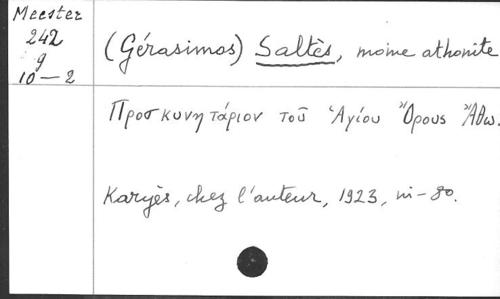 Meester
242
9
10-2
(Gérasimos) Saltès, moine athonite
Προσκυνητάριον τοῦ Ἁγίου Ὄρους Ἄθω.
Karyès, chez l'auteur, 1923, in-8o.